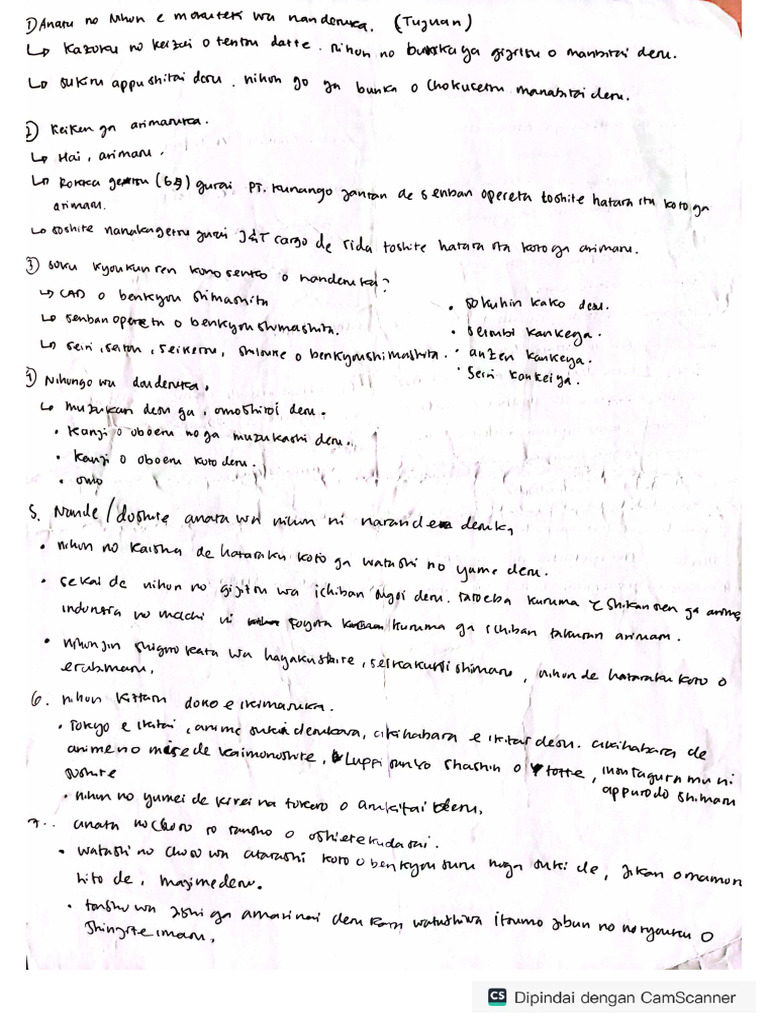 1) Anata no Nihon e mokuteki wa nandesuka. (Tujuan)
↳ Kazoku no keizai o tentsu datte. Nihon no bunkaya gijutsu o manbitai desu.
↳ sukiru appushitai desu. nihon go ga bunka o chokusetsu manabitai desu.
2) Keiken ga arimasuka.
↳ Hai, arimasu.
↳ Rokka getsu (6月) gurai PT. Kunango Jantan de senban opereta toshite hatara ita koto ga
arimasu.
↳ soshite nanakagetsu gurai J&T cargo de rida toshite hatara ita koto ga arimasu.
3) soku kyoukun ren kono senko o nandesuka?
↳ CAD o benkyou shimashita
↳ senban opereta o benkyou shimashita.
↳ seiri, seiton, seiketsu, shitsuke o benkyoushimashita.
• sokuhin kako desu.
• seimbi kankeya.
• anzen kankeya.
• Seiri kankeiya.
4) Nihongo wa doudesuka.
↳ muzukan desu ga, omoshiroi desu.
• kanji o oboeru noga muzukashi desu.
• kanji o oboeru koto desu.
• omo
5. Nande/doshite anata wa nihon ni narande desuk,
• nihon no kaisha de hataraku koto ga watashi no yume desu.
• sekai de nihon no gijitsu wa ichiban sugoi desu. tatoeba kuruma to shikansen ga arimasu
indonesia no machi ni Toyota kuruma ga ichiban takusan arimasu.
• nihonjin shigoto kata wa hayakushite, seikakuni shimasu, nihon de hataraku koto o
erabimasu.
6. nihon kittara doko e ikimasuka.
• Tokyo e ikitai, anime suki desukara, akihabara e ikitai desu. akihabara de
anime no mise de kaimonoshite, Luppi sanko shashin o totte, insutaguramu ni
sushite appurodo shimasu
• nihon no yumei de kirei na tokoro o arukitai desu.
7.. anata no choso to tansho o oshietekudasai.
• watashi no choso wa atarashi koto o benkyou suru noga suki de, jikan o mamoru
hito de, majimedesu.
• tansho wa jishi ga amarinai desu kara watashiwa itsumo jibun no noryouku o
shinjite imasu.
CS Dipindai dengan CamScanner